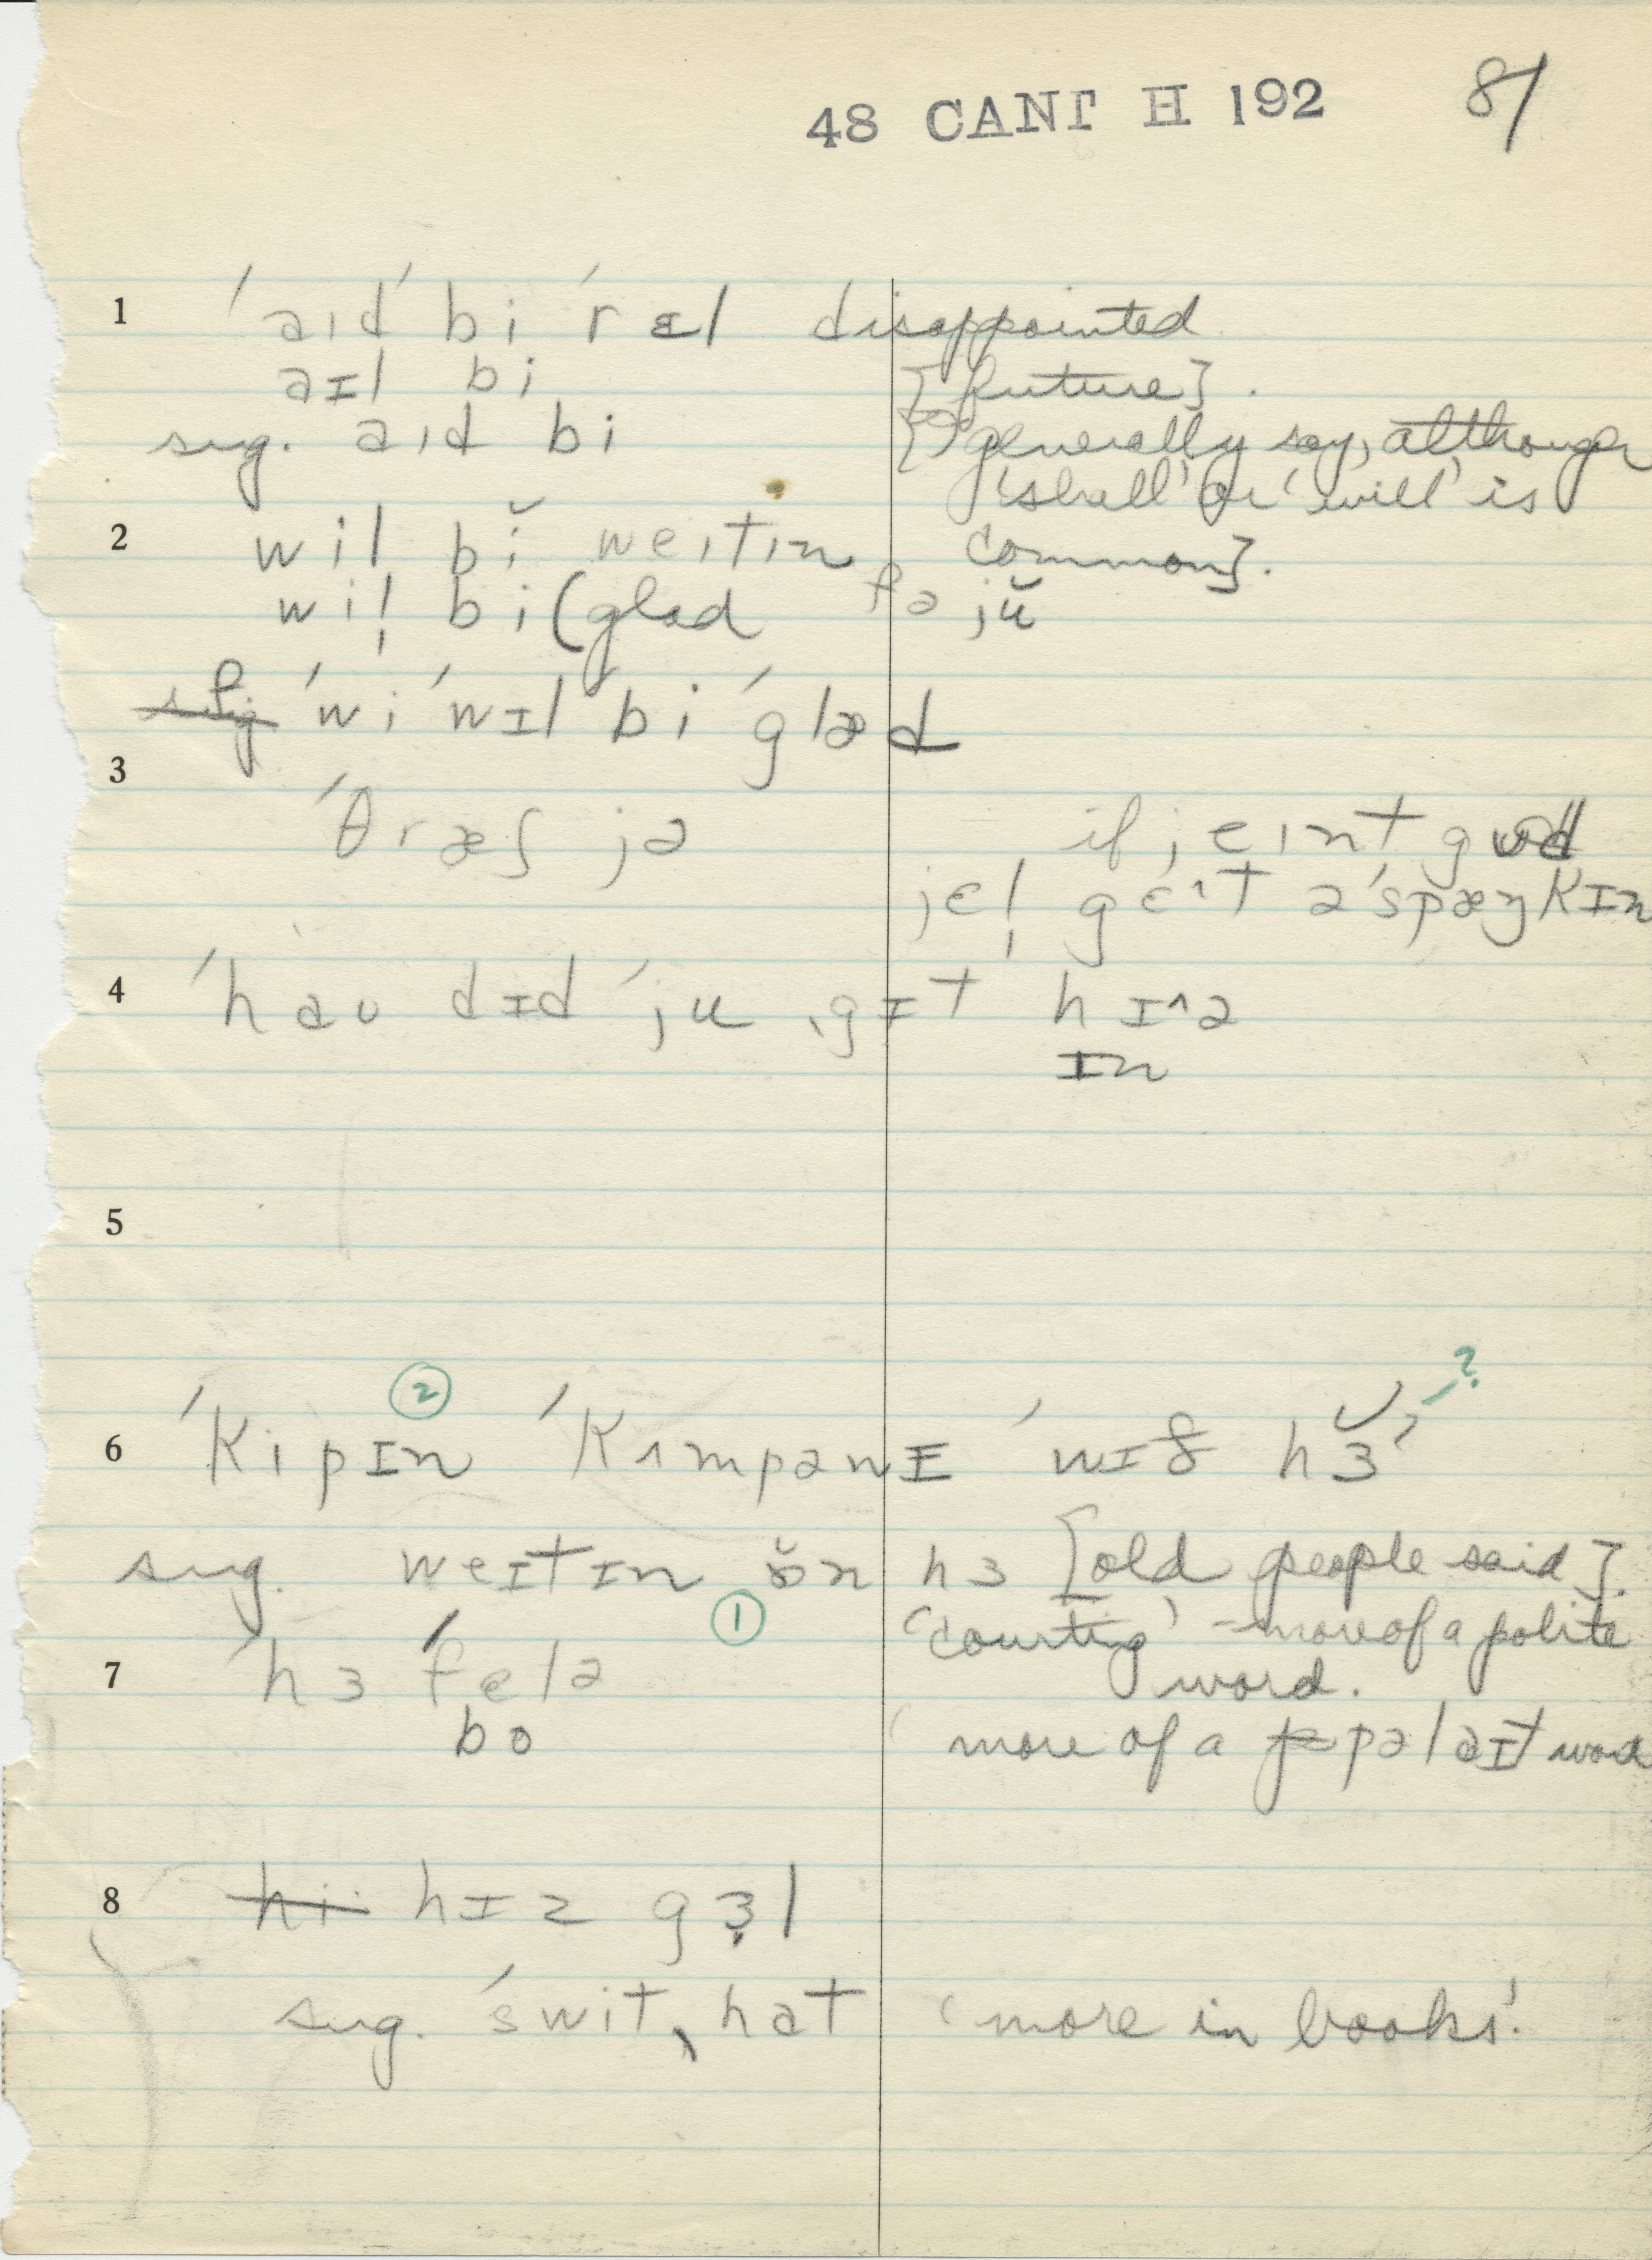 48 CANT H 192 81
1 ˈaɪd ˈbi ˈrɛl disappointed
aɪl bi [future].
sug. aɪd bi [generally say, although
'shall' or 'will' is
2 wil bĭ weɪtɪn common].
wil̩ bi (glad fə jŭ
ˈwi ˈwɪl bi ˈglæd
3 ˈθræʃ jə if jeɪnt gʊd
jel̩ ge^t ə ˈspæŋkɪn
4 ˈhaʊ dɪd ˈju ˌgɪt hɪ^ə
ɪn
5
② ?
6 ˈkipɪn ˈkʌmpənɪ ˈwɪð hɜ
sug. weɪtɪn ɒ̆n hɜ [old people said].
① 'courting' – more of a polite
7 ˈhɜ ˈfelə word.
bo 'more of a pəlaɪt word
8 hi hɪz gɜl
sug. ˈswitˌhat 'more in books'.